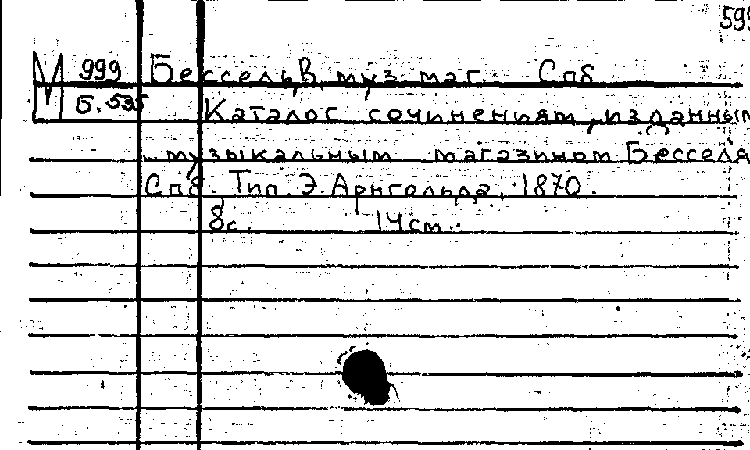 599
М 999 Бессель, В. муз. маг. Спб
Б.535 Каталог сочинениям, изданным
музыкальным магазином Бесселя
Спб. Тип. Э. Арнгольда, 1870.
8с. 14см.